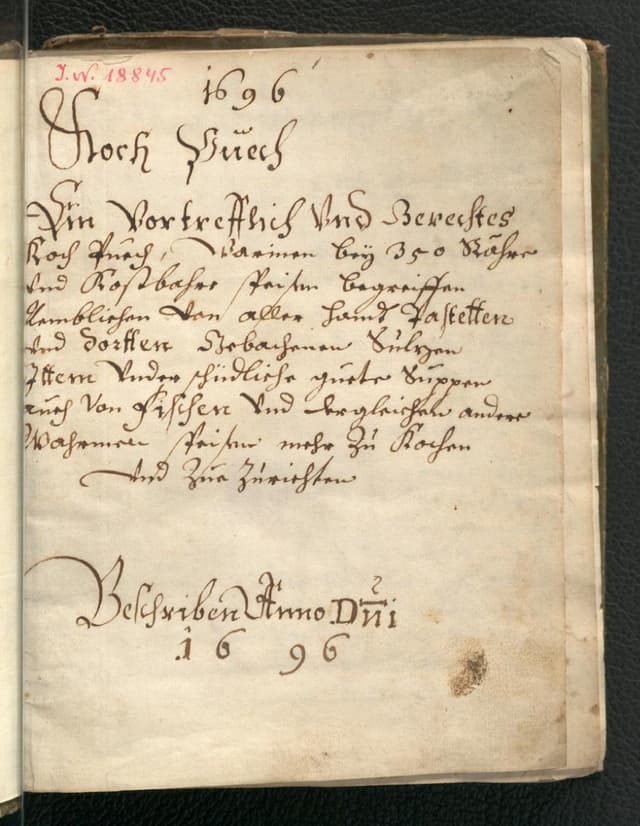 J. N. 18845
1696
Koch Puech
Ein Vortrefflich Vnd Gerechtes
Koch Puech, Warinen bey 350 Rahre
vnd Kostbahre speisen begreiffen
Nemblichen von aller handt Pastetten
vnd dortten Gebachenen Sulzen
Ittem Vnderschidliche guete Suppen
auch Von Fischen Vnd dergleichen andere
Wahrmen speisen mehr Zu Kochen
vnd Zue Zurichten
Beschriben Anno Dni
1696